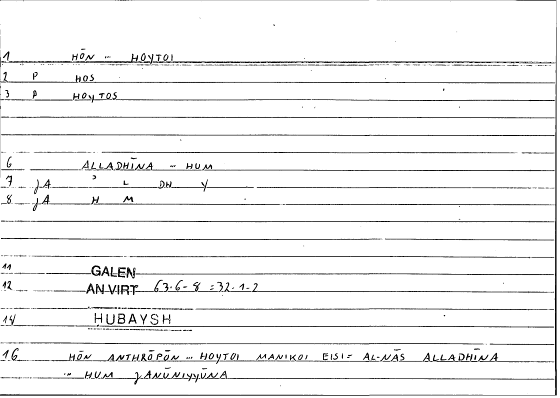 1 HŌN ... HOYTOI
2 P HOS
3 P HOYTOS
6 ALLADHĪNA ... HUM
7 jA ʾ L DH Y
8 jA H M
11 GALEN
12 AN VIRT 63.6-8 = 32.1-2
14 HUBAYSH
16 HŌN ANTHRŌPŌN ... HOYTOI MANIKOI EISI = AL-NĀS ALLADHĪNA
... HUM JANŪNIYYŪNA